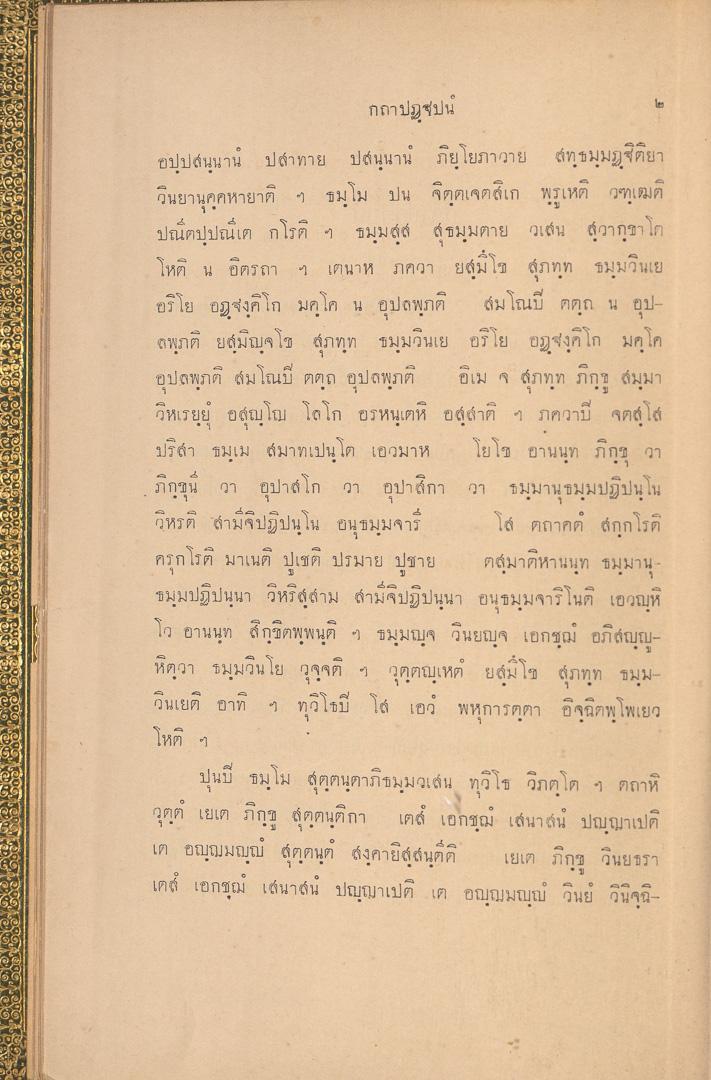 กถาปฏฺฐปนํ ๒
อปฺปสนฺนานํ ปสาทาย ปสนฺนานํ ภิยฺโยภาวาย สทฺธมฺมฏฺฐิติยา
วินยานุคฺคหายาติ ฯ ธมฺโม ปน จิตฺตเจตสิเก พฺรูเหติ วฑฺเฒติ
ปณีตปฺปณีเต กโรติ ฯ ธมฺมสฺส สุธมฺมตาย วเสน สฺวากฺขาโต
โหติ น อิตรถา ฯ เตนาห ภควา ยสฺมึโข สุภทฺท ธมฺมวินเย
อริโย อฏฺฐงฺคิโก มคฺโค น อุปลพฺภติ สมโณปี ตตฺถ น อุป-
ลพฺภติ ยสฺมิญฺจโข สุภทฺท ธมฺมวินเย อริโย อฏฺฐงฺคิโก มคฺโค
อุปลพฺภติ สมโณปี ตตฺถ อุปลพฺภติ อิเม จ สุภทฺท ภิกฺขู สมฺมา
วิหเรยฺยุํ อสุญฺโญ โลโก อรหนฺเตหิ อสฺสาติ ฯ ภควาปี จตสฺโส
ปริสา ธมฺเม สมาทเปนฺโต เอวมาห โยโข อานนฺท ภิกฺขุ วา
ภิกฺขุนี วา อุปาสโก วา อุปาสิกา วา ธมฺมานุธมฺมปฏิปนฺโน
วิหรติ สามีจิปฏิปนฺโน อนุธมฺมจารี โส ตถาคตํ สกฺกโรติ
ครุกโรติ มาเนติ ปูเชติ ปรมาย ปูชาย ตสฺมาติหานนฺท ธมฺมานุ-
ธมฺมปฏิปนฺนา วิหริสฺสาม สามีจิปฏิปนฺนา อนุธมฺมจาริโนติ เอวญฺหิ
โว อานนฺท สิกฺขิตพฺพนฺติ ฯ ธมฺมญฺจ วินยญฺจ เอกชฺฌํ อภิสญฺญู-
หิตฺวา ธมฺมวินโย วุจฺจติ ฯ วุตฺตญฺเหตํ ยสฺมึโข สุภทฺท ธมฺม-
วินเยติ อาทิ ฯ ทุวิโธปี โส เอวํ พหุการตฺตา อิจฺฉิตพฺโพเยว
โหติ ฯ
ปุนปี ธมฺโม สุตฺตนฺตาภิธมฺมวเสน ทุวิโธ วิภตฺโต ฯ ตถาหิ
วุตฺตํ เยเต ภิกฺขู สุตฺตนฺติกา เตสํ เอกชฺฌํ เสนาสนํ ปญฺญาเปติ
เต อญฺญมญฺญํ สุตฺตนฺตํ สงฺคายิสฺสนฺตีติ เยเต ภิกฺขู วินยธรา
เตสํ เอกชฺฌํ เสนาสนํ ปญฺญาเปติ เต อญฺญมญฺญํ วินยํ วินิจฺฉิ-